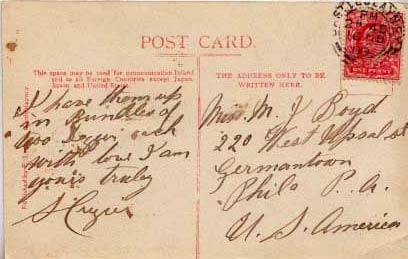 POST CARD.
This space may be used for communication Inland
and to all Foreign Countries except Japan,
Spain and United States.
THE ADDRESS ONLY TO BE
WRITTEN HERE.
I have them up
in Bundles of
two Dozen each
with love I am
yours truly
Miss M. J Boyd
220 West Upsal st
Germantown
Phila P. A.
U. S. America
ONE PENNY